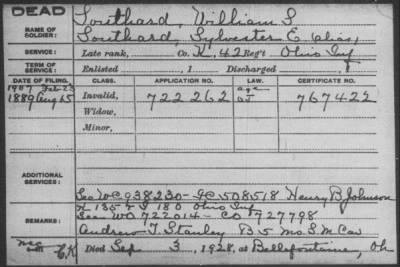 DEAD
NAME OF SOLDIER: Southard, William S
Southard, Sylvester E. alias,
SERVICE: Late rank, Co. K, 42 Reg't Ohio Inf
TERM OF SERVICE: Enlisted , 1 Discharged , 1
DATE OF FILING. CLASS. APPLICATION NO. LAW. CERTIFICATE NO.
1907 Feb 23 age
1889 Aug 15 Invalid, 722262 GJ 767422
Widow,
Minor,
ADDITIONAL SERVICES:
See WC 938230 - IC 508518 Henry B Johnson
K 135 + I 180 Ohio Inf
REMARKS: See WO 722014 - CO 727798
Andrew T. Stanley B 5 Mo. S. M. Cav
CK Died Sep 3, 1928, at Bellefontaine, Oh